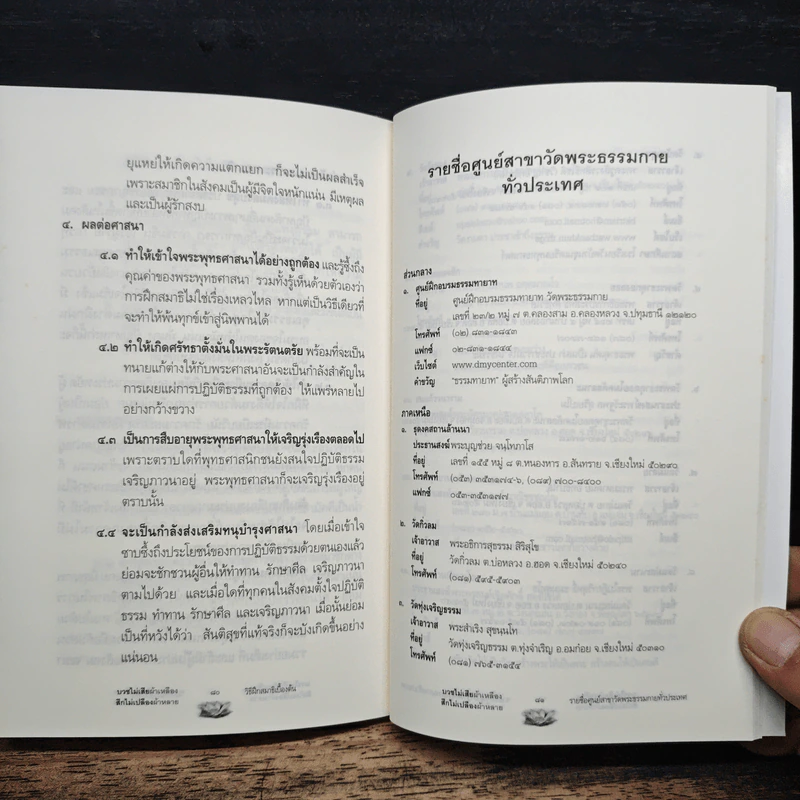 ยุแหย่ให้เกิดความแตกแยก ก็จะไม่เป็นผลสำเร็จ
เพราะสมาชิกในสังคมเป็นผู้มีจิตใจหนักแน่น มีเหตุผล
และเป็นผู้รักสงบ
๔. ผลต่อศาสนา
๔.๑ ทำให้เข้าใจพระพุทธศาสนาได้อย่างถูกต้อง และรู้ซึ้งถึง
คุณค่าของพระพุทธศาสนา รวมทั้งรู้เห็นด้วยตัวเองว่า
การฝึกสมาธิไม่ใช่เรื่องเหลวไหล หากแต่เป็นวิธีเดียวที่
จะทำให้พ้นทุกข์เข้าสู่นิพพานได้
๔.๒ ทำให้เกิดศรัทธาตั้งมั่นในพระรัตนตรัย พร้อมที่จะเป็น
ทนายแก้ต่างให้กับพระศาสนาอันจะเป็นกำลังสำคัญใน
การเผยแผ่การปฏิบัติธรรมที่ถูกต้อง ให้แพร่หลายไป
อย่างกว้างขวาง
๔.๓ เป็นการสืบอายุพระพุทธศาสนาให้เจริญรุ่งเรืองตลอดไป
เพราะตราบใดที่พุทธศาสนิกชนยังสนใจปฏิบัติธรรม
เจริญภาวนาอยู่ พระพุทธศาสนาก็จะเจริญรุ่งเรืองอยู่
ตราบนั้น
๔.๔ จะเป็นกำลังส่งเสริมทนุบำรุงศาสนา โดยเมื่อเข้าใจ
ซาบซึ้งถึงประโยชน์ของการปฏิบัติธรรมด้วยตนเองแล้ว
ย่อมจะชักชวนผู้อื่นให้ทำทาน รักษาศีล เจริญภาวนา
ตามไปด้วย และเมื่อใดที่ทุกคนในสังคมตั้งใจปฏิบัติ
ธรรม ทำทาน รักษาศีล และเจริญภาวนา เมื่อนั้นย่อม
เป็นที่หวังได้ว่า สันติสุขที่แท้จริงก็จะบังเกิดขึ้นอย่าง
แน่นอน
บวชไม่เสียผ้าเหลือง
สึกไม่เปลืองผ้าหลาย
๘๐ วิธีฝึกสมาธิเบื้องต้น
รายชื่อศูนย์สาขาวัดพระธรรมกาย
ทั่วประเทศ
ส่วนกลาง
๑. ศูนย์ฝึกอบรมธรรมทายาท
ที่อยู่ ศูนย์ฝึกอบรมธรรมทายาท วัดพระธรรมกาย
เลขที่ ๒๓/๒ หมู่ ๗ ต.คลองสาม อ.คลองหลวง จ.ปทุมธานี ๑๒๑๒๐
โทรศัพท์ (๐๒) ๘๓๑-๑๘๔๓
แฟกซ์ ๐๒-๘๓๑-๑๘๔๔
เว็บไซต์ www.dmycenter.com
คำขวัญ "ธรรมทายาท" ผู้สร้างสันติภาพโลก
ภาคเหนือ
๑. ธุดงคสถานล้านนา
ประธานสงฆ์ พระบุญช่วย จนฺโทภาโส
ที่อยู่ เลขที่ ๑๕๕ หมู่ ๘ ต.หนองหาร อ.สันทราย จ.เชียงใหม่ ๕๐๒๙๐
โทรศัพท์ (๐๕๓) ๓๕๓๑๗๔-๖, (๐๘๙) ๗๐๐-๘๔๐๐
แฟกซ์ ๐๕๓-๓๕๓๑๗๗
๒. วัดกิ่วลม
เจ้าอาวาส พระอธิการสุธรรม สิริสุโข
ที่อยู่ วัดกิ่วลม ต.บ่อหลวง อ.ฮอด จ.เชียงใหม่ ๕๐๒๔๐
โทรศัพท์ (๐๘๑) ๕๙๕-๕๙๐๓
๓. วัดทุ่งเจริญธรรม
เจ้าอาวาส พระสำเริง สุขนนฺโท
ที่อยู่ วัดทุ่งเจริญธรรม ต.ทุ่งจำเริญ อ.อมก๋อย จ.เชียงใหม่ ๕๐๓๑๐
โทรศัพท์ (๐๘๑) ๗๖๕-๓๑๕๔
บวชไม่เสียผ้าเหลือง
สึกไม่เปลืองผ้าหลาย
๘๑ รายชื่อศูนย์สาขาวัดพระธรรมกายทั่วประเทศ